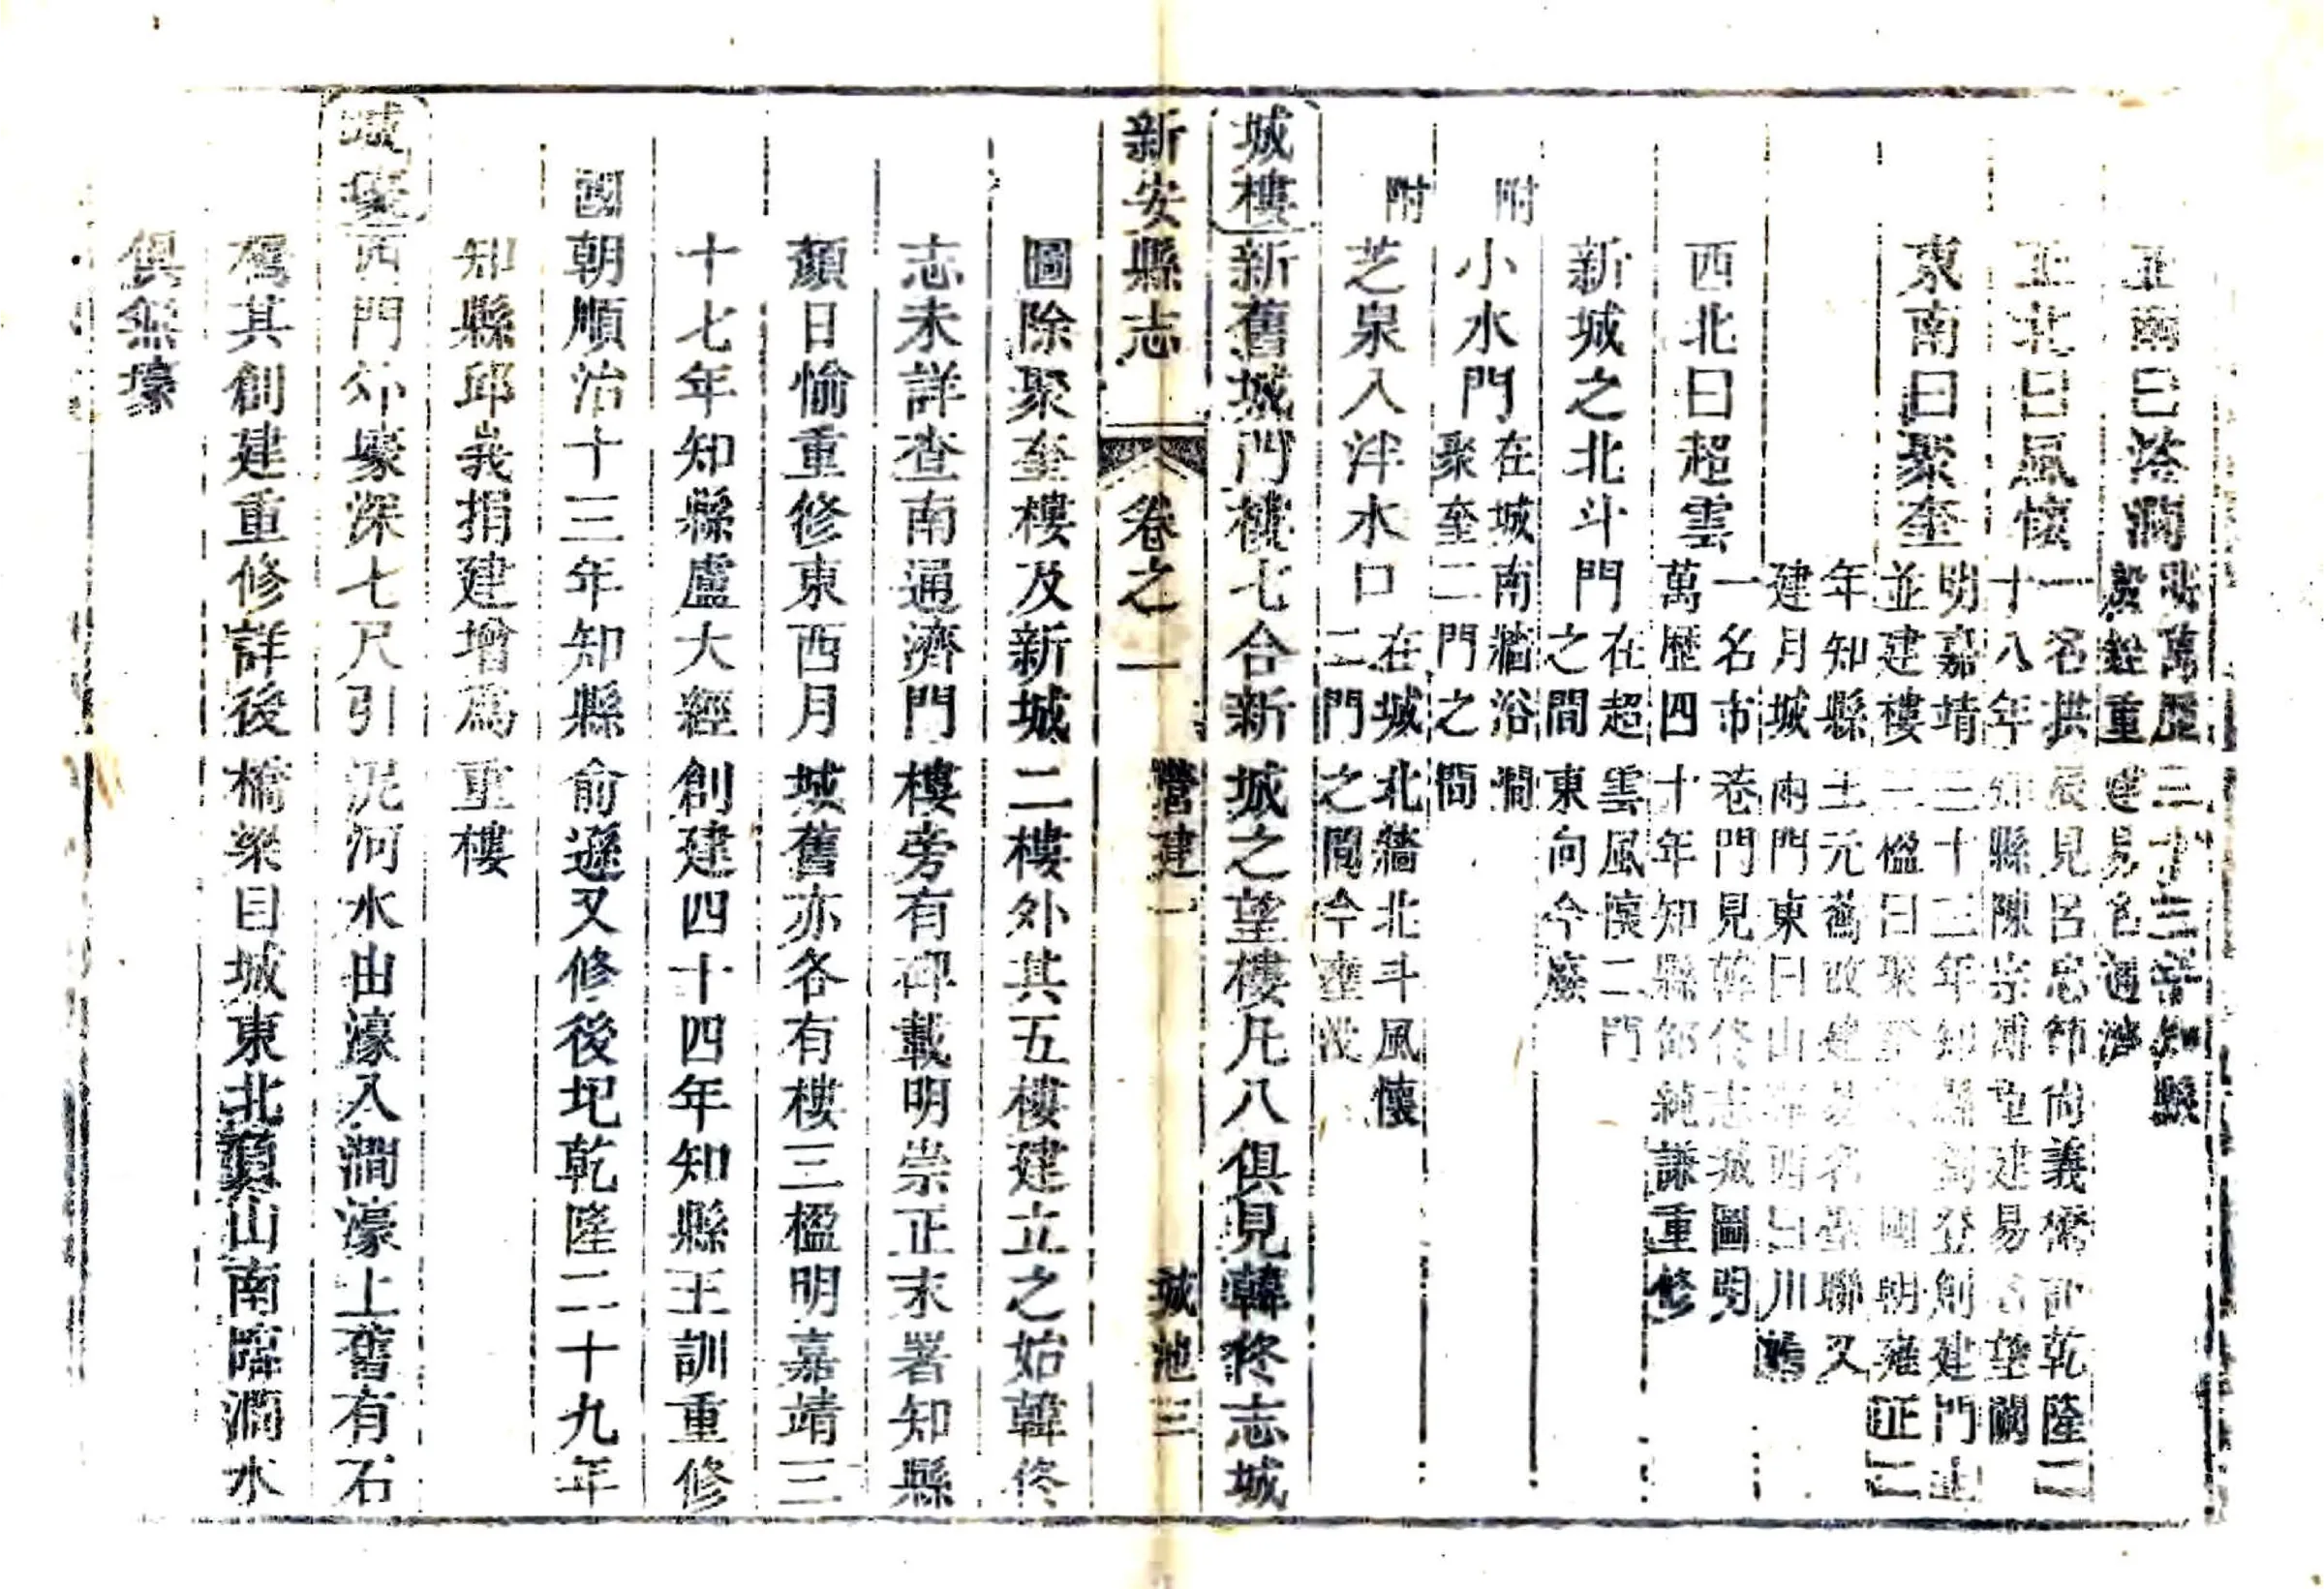 正南曰濬澗明萬歷三十三年知縣
嚴鋞重建易名通濟
正北曰風懷一名拱辰見呂忠節尚義橋記乾隆二
十八年知縣陳宗溥重建易名望闕
東南曰聚奎明嘉靖三十二年知縣劉登創建門止
並建樓三楹曰聚奎國朝雍正二
年知縣王元蕎改建易名聖聯又
建月城兩門東曰山西曰川
西北曰超雲一名市巷門見韓佟志城圖明
萬歷四十年知縣純謙重修
新城之北斗門在超雲風懷二門
之間東向今廢
附
小水門在城南牆浴澗
聚奎二門之間
附
芝泉入泮水口在城北牆北斗風懷
二門之間今堙沒
城樓
新舊城門樓七合新城之望樓凡八俱見韓佟志城
新安縣志 卷之一 營建一 城池三
圖除聚奎樓及新城二樓外其五樓建立之始韓佟
志未詳查南通濟門樓旁有碑載明崇正末署知縣
顏日愉重修東西月城舊亦各有樓三楹明嘉靖三
十七年知縣盧大經創建四十四年知縣王訓重修
國朝順治十三年知縣俞遜又修後圮乾隆二十九年
知縣邱峩捐建增爲重樓
城壕
西門外壕深七尺引泥河水由濠入澗濠上舊有石
橋其創建重修詳後橋梁目城東北負山南臨澗水
俱無壕